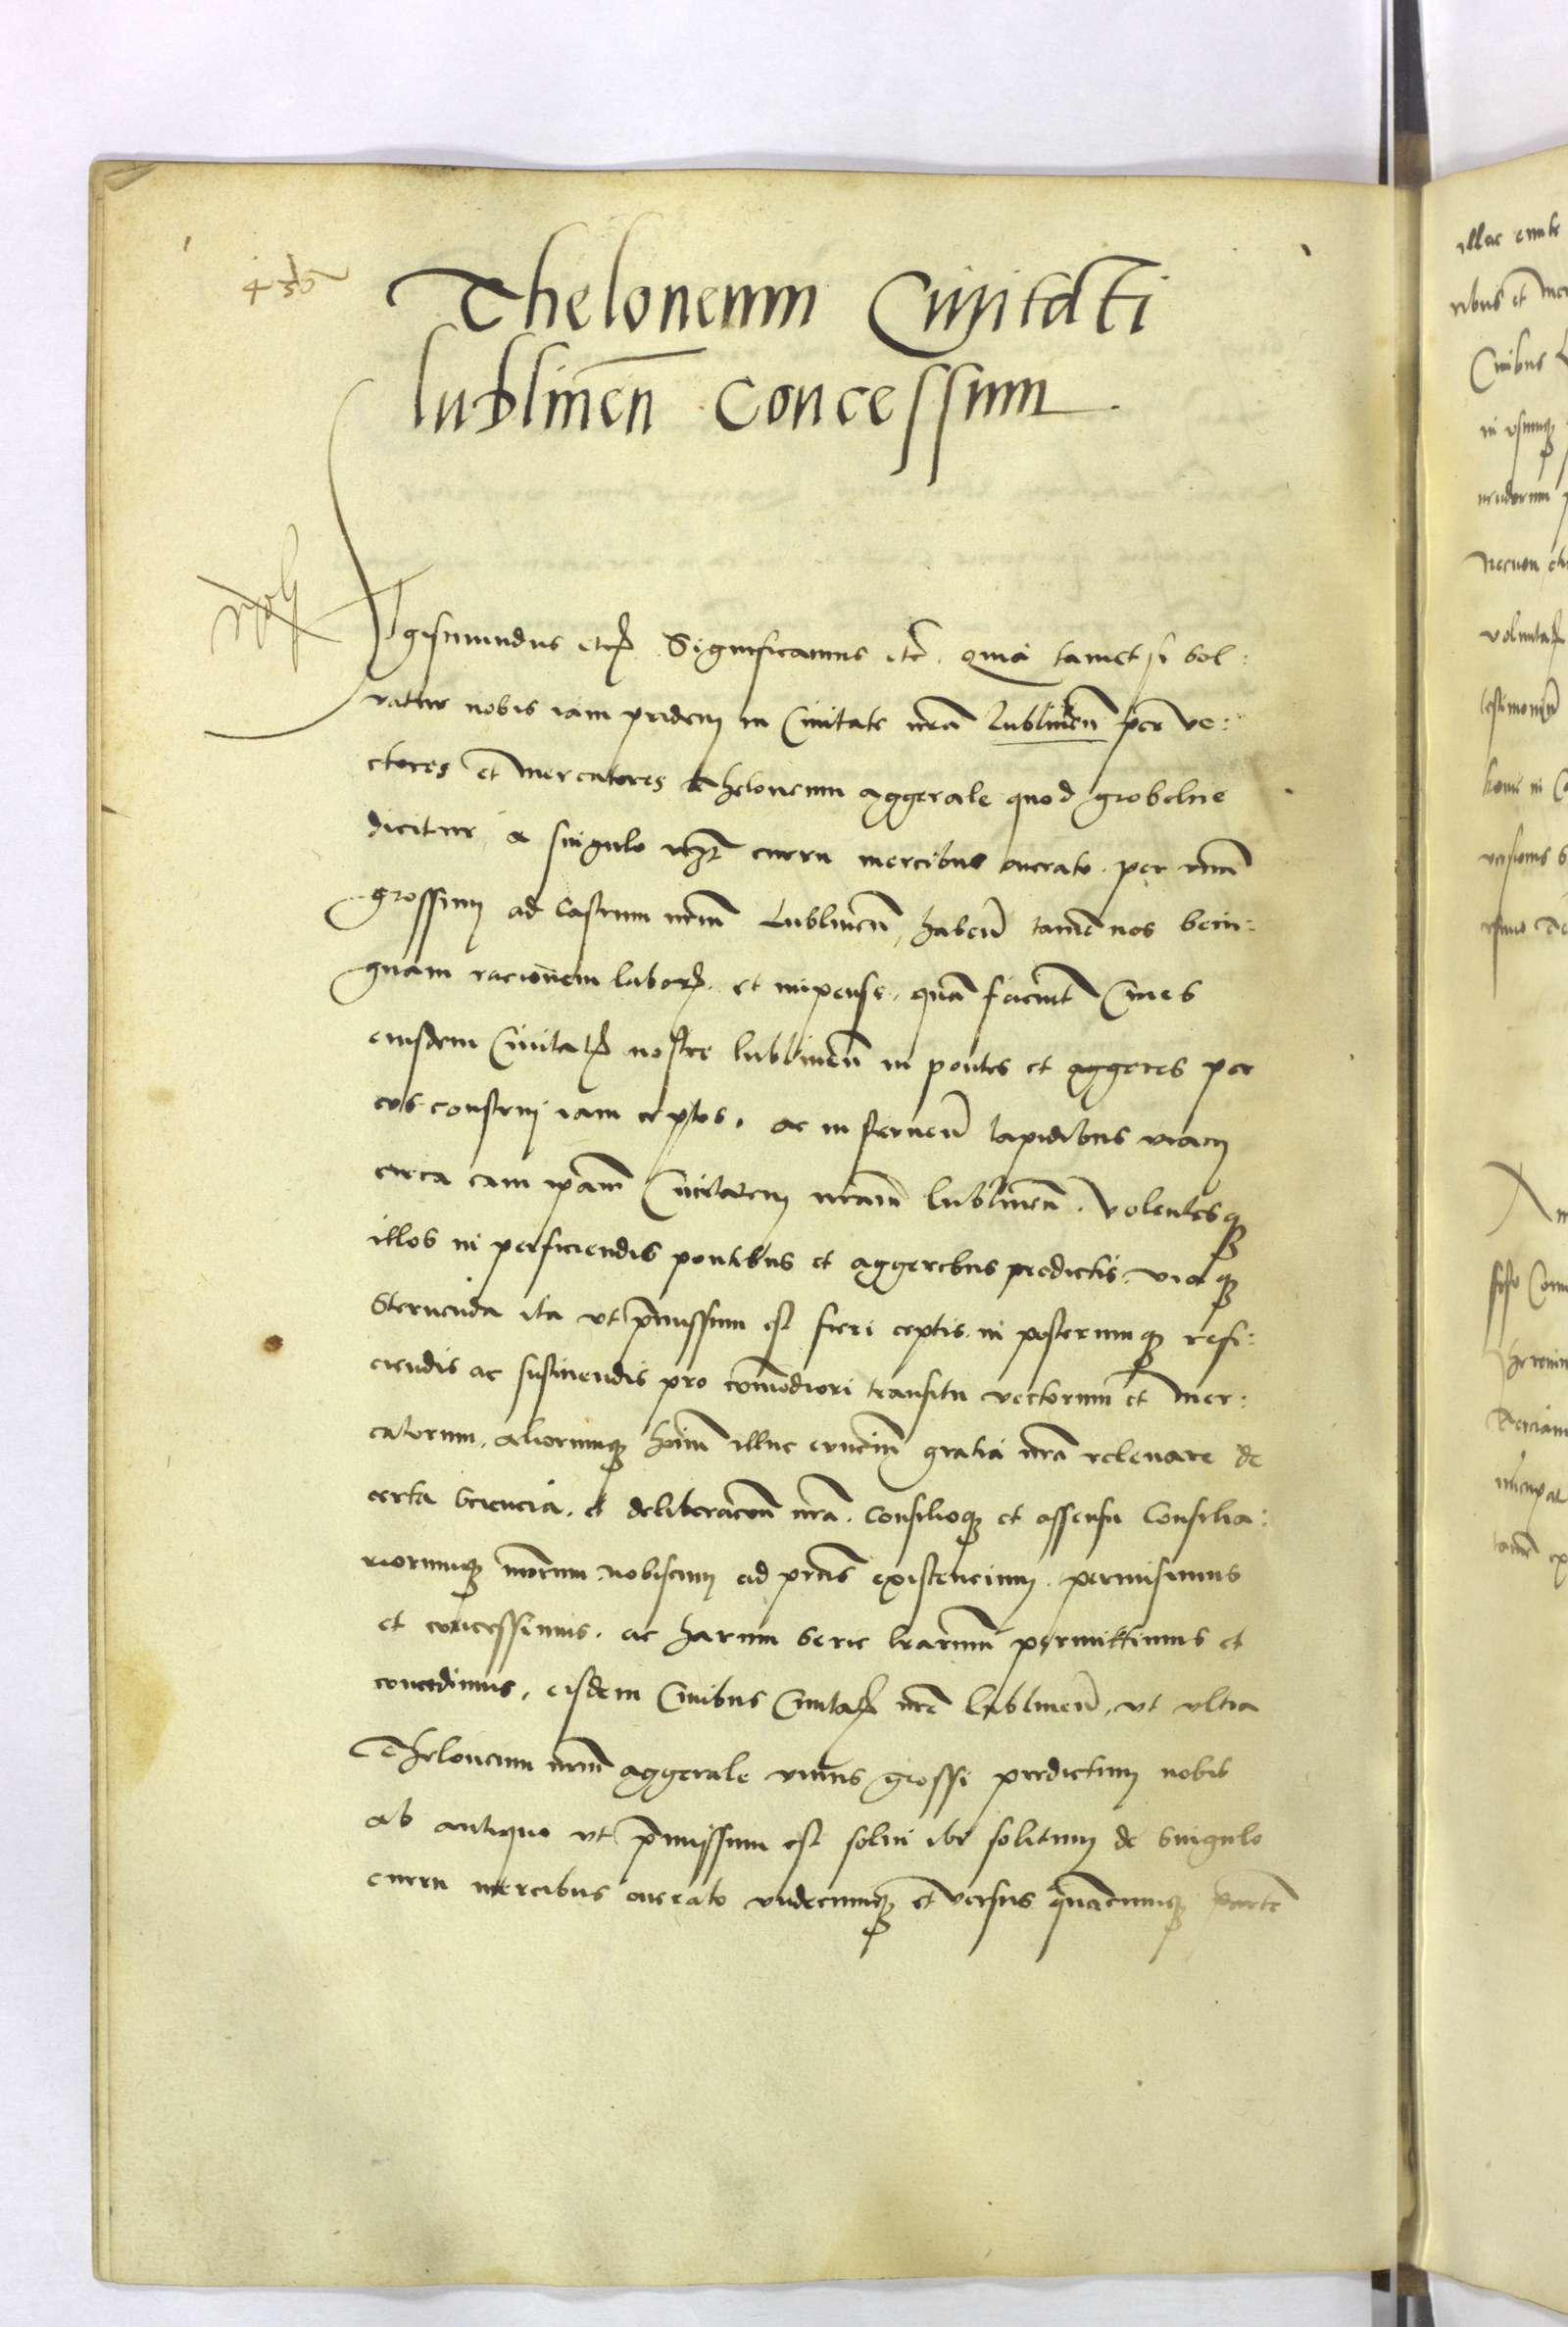 Theloneum Civitati
Lublinen concessum
Sigismundus etc. Significamus etc. quia tametsi sol:
vatur nobis iam pridem in Civitate nra Lublinen per ve:
ctores et mercatores theloneum aggerale quod grobelne
dicitur a singulo curru mercibus onerato per unu
grossum ad castrum nrm Lublinen, haben tame nos beni:
gnam racionem labor et impense, qua faciunt Cives
eiusdem Civitat nostre Lublinen in pontes et aggeres per
eos construi iam ceptos, ac in sternen lapidibus viam
circa eam ipam Civitatem nram Lublinen. Volentesq
illos in perficiendis pontibus et aggeribus predictis viaq
sternenda ita ut pmissum est fieri ceptis in posterumq refi:
ciendis ac sustinendis pro comodiori transitu vectorum et mer:
catorum, aliorumq hoim illuc gratia nra relevare de
certa sciencia, et deliberacone nra, consilioq et assensu Consilia:
riorumq nrorum nobiscum ad prns existencium, permisimus
et concessimus, ac harum serie lrarum permittimus et
concedimus, eisdem Civibus Civitat nre Lublinen, ut ultra
Theloneum nrm aggerale unius grossi predictum nobis
ab antiquo ut pmissum est solvi ibi solitum de singulo
curru mercibus onerato undecumq et versus quacumq parte
illac
ribus et mer
Civibus
in usumq
necnon
voluntat
testimoniu